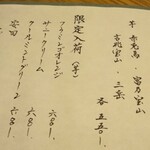 芋 赤兎馬・富乃宝山
吉兆宝山・三岳
各 五五〇-
限定入荷(芋)
フラミンゴオレンジ 六八〇-
サニークリーム 六八〇-
タークミントグリーン 六八〇-
安田 六八〇-